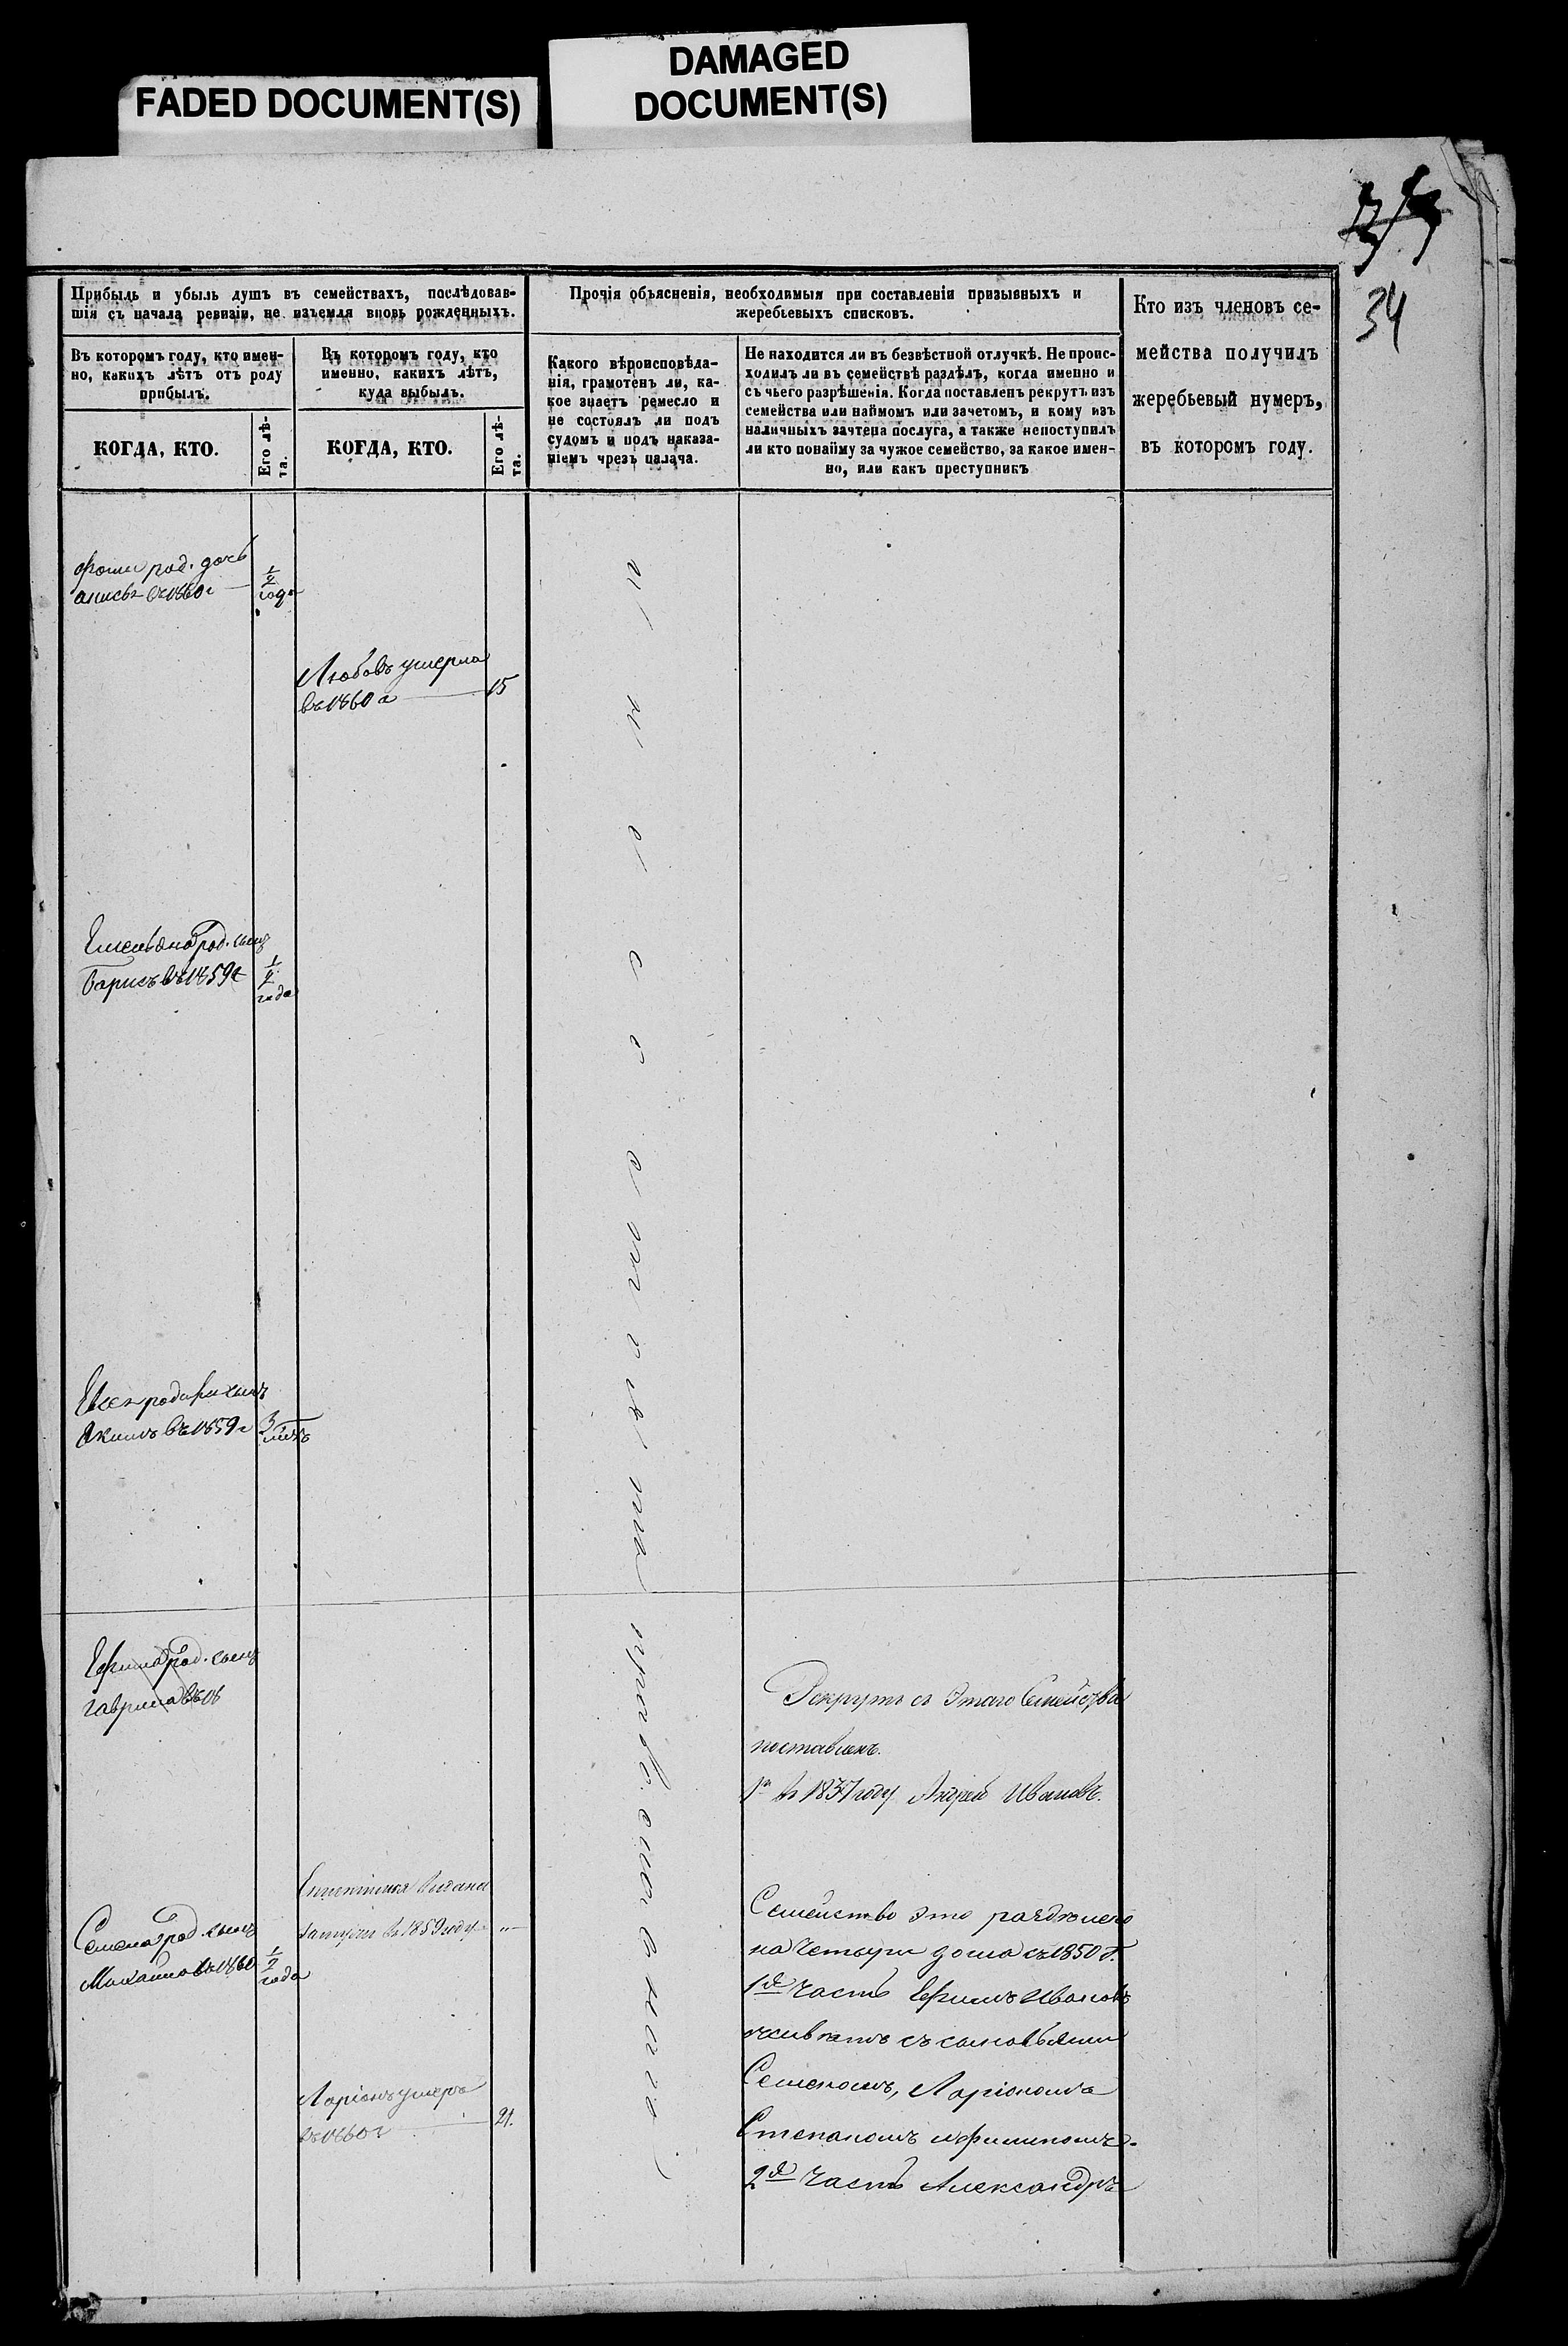 FADED DOCUMENT(S)
DAMAGED
DOCUMENT(S)
34
Прибыль и убыль душъ въ семействахъ, послѣдовав-
шія съ начала ревизіи, не изъемля вновь рожденныхъ.
Въ которомъ году, кто имен-
но, какихъ лѣтъ отъ роду
прибылъ.
КОГДА, КТО.
Его лѣ-
та.
Въ которомъ году, кто
именно, какихъ лѣтъ,
куда выбылъ.
КОГДА, КТО.
Его лѣ-
та.
Прочія объясненія, необходимыя при составленіи призывныхъ и
жеребьевыхъ списковъ.
Какого вѣроисповѣда-
нія, грамотенъ ли, ка-
кое знаетъ ремесло и
не состоялъ ли подъ
судомъ и подъ наказа-
ніемъ чрезъ палача.
Не находится ли въ безвѣстной отлучкѣ. Не проис-
ходилъ ли въ семействѣ раздѣлъ, когда именно и
съ чьего разрѣшенія. Когда поставленъ рекрутъ изъ
семейства или наймомъ или зачетомъ, и кому изъ
наличныхъ зачтена послуга, а также непоступилъ
ли кто понайму за чужое семейство, за какое имен-
но, или какъ преступникъ
Кто изъ членовъ се-
мейства получилъ
жеребьевый нумеръ,
въ которомъ году.
род. дочь
въ 1860 г
1/2
года
Любовь умерла
въ 1860 г
15
Емельяна род. сынъ
Борисъ въ 1859 г
1/2
года
сынъ
Акимъ въ 1859 г
3
Ефима род. сынъ
Гаврила
Рекрутъ съ Этаго Семейства
поставленъ.
въ 1837 году Андрей Ивановъ.
выдана
замужъ въ 1859 году
"
Семена род. сынъ
Михайло въ 1860
1/2
года
Семейство это раздѣлено
на Четыри дома съ 1850 г.
1я Часть Ефимъ Ивановъ
съ сыновьями
Семеномъ, Ларіономъ
Степаномъ
2я Часть Александръ
Ларіонъ умеръ
въ 1860 г
21.